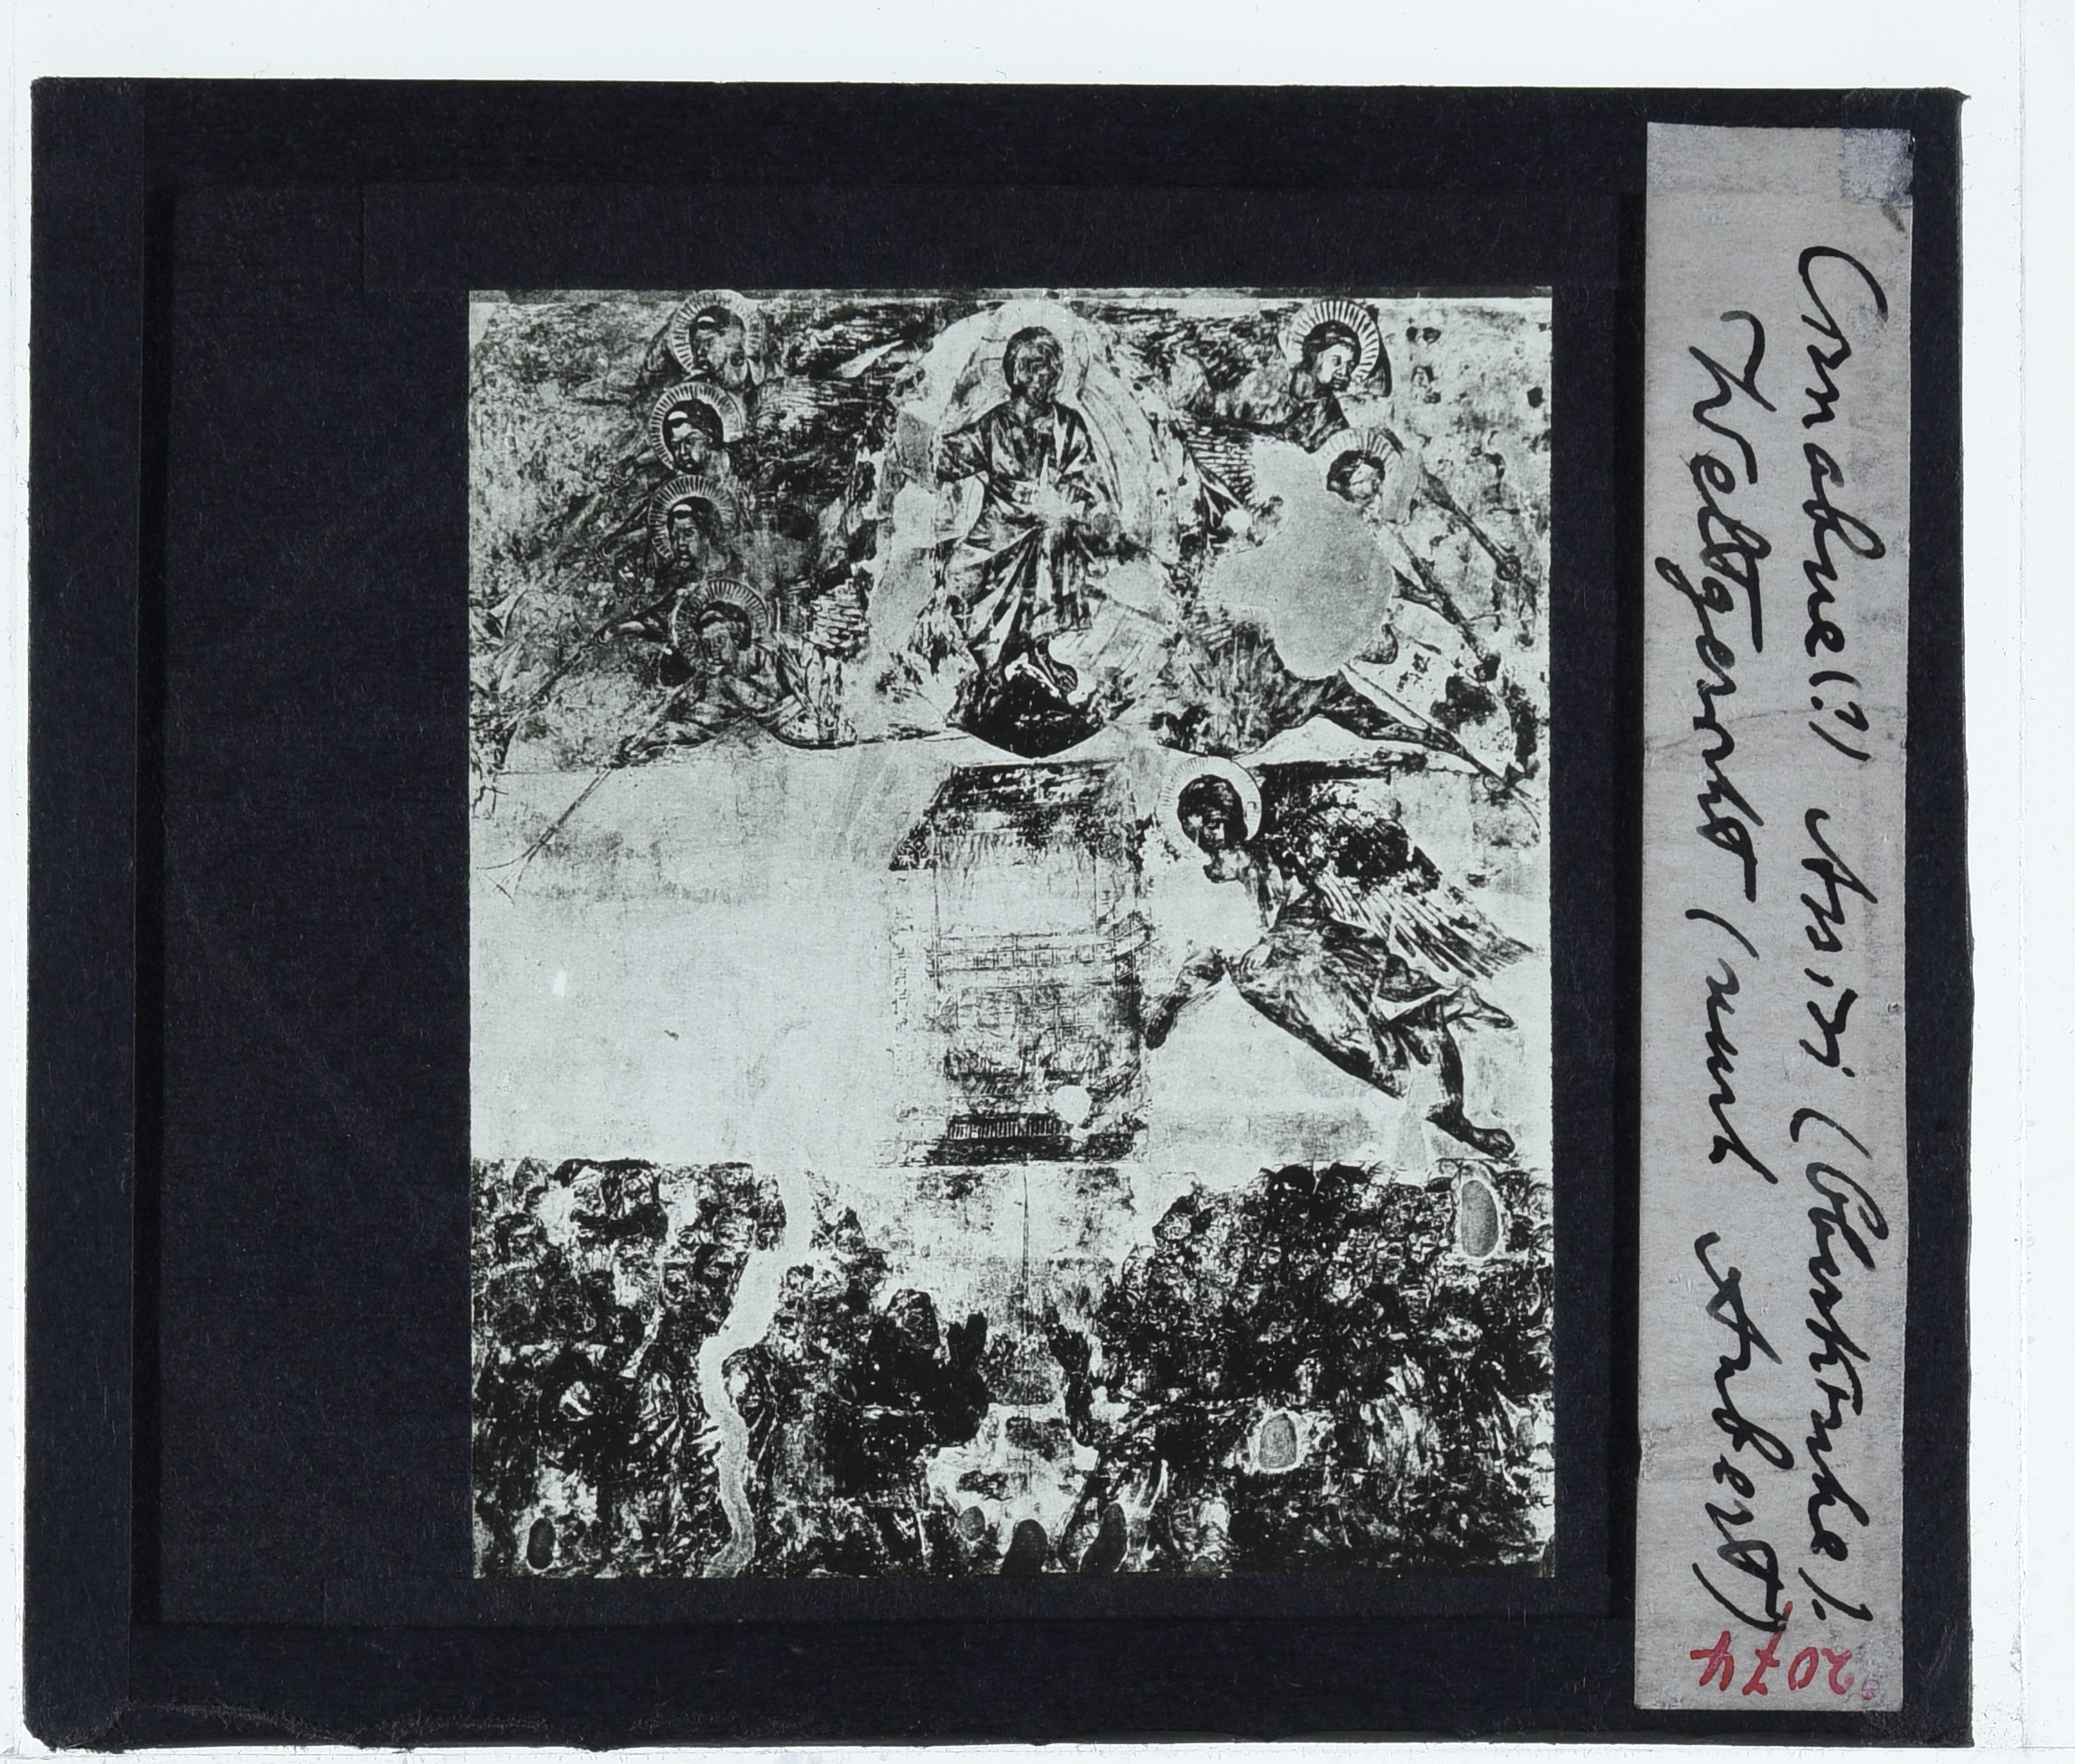 Cimabue(?) Assisi (Oberkirche).
Weltgericht (nach Aubert)
2074